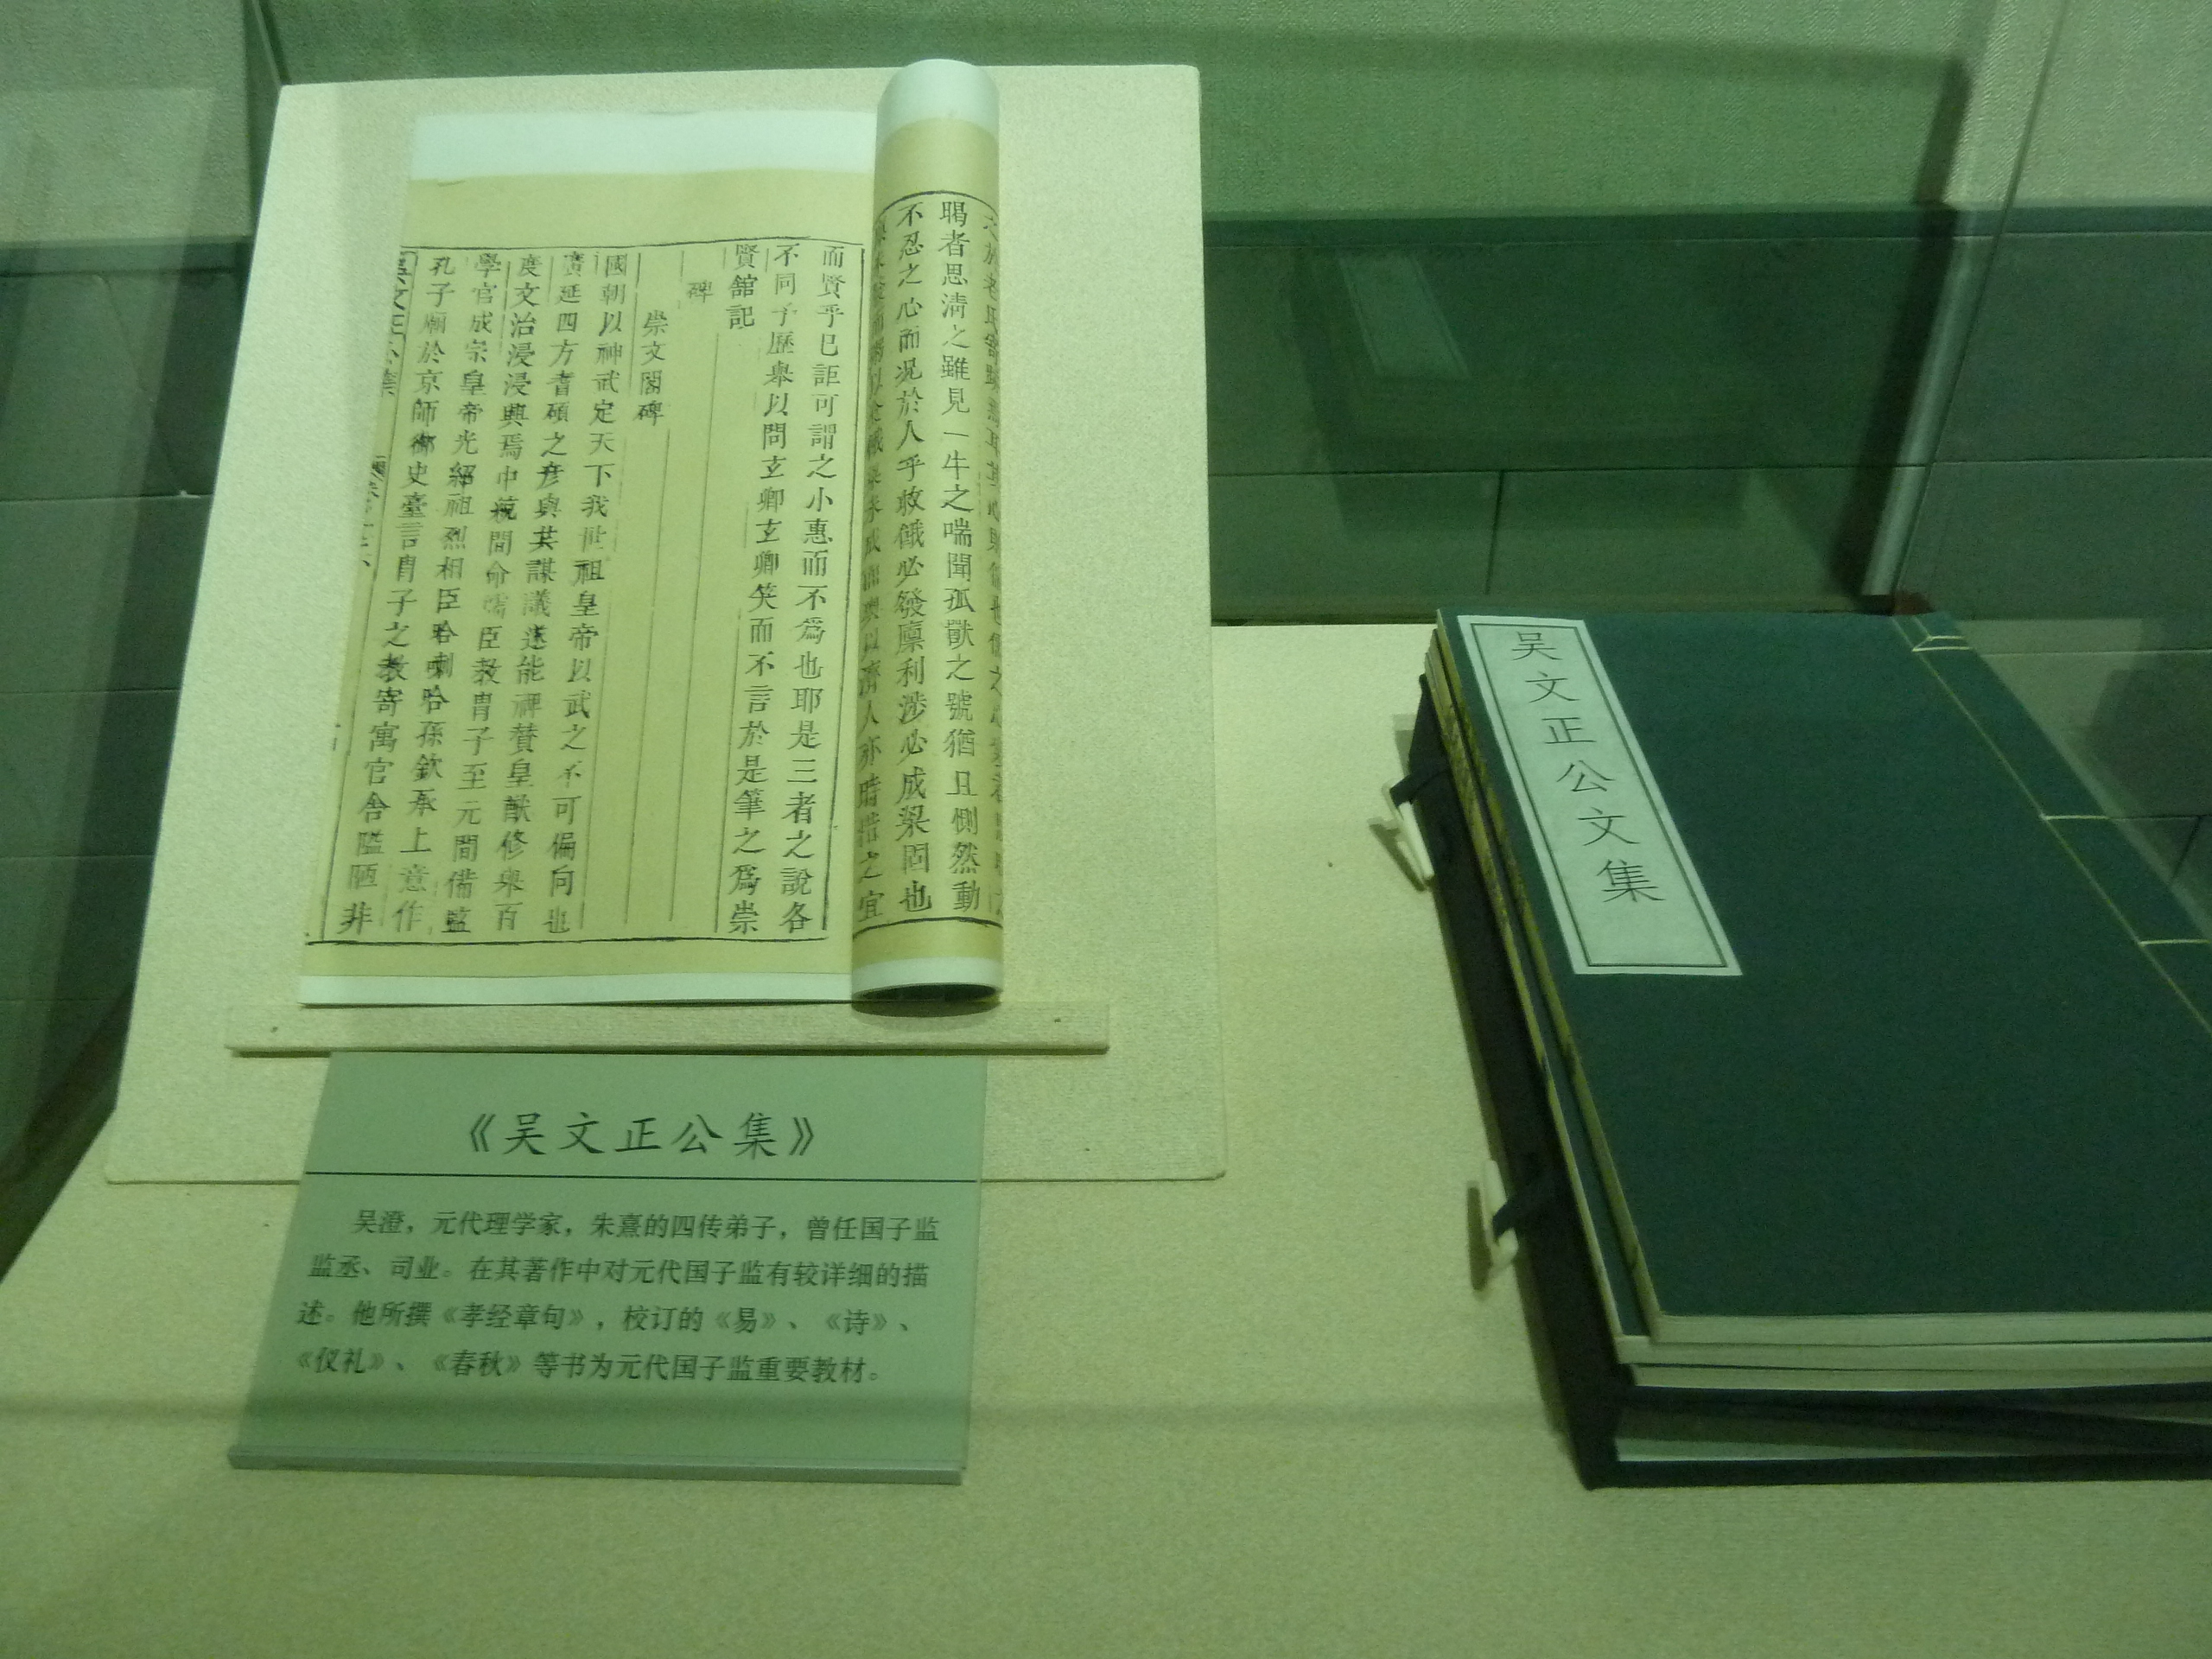 暍者思清之雖見一牛之喘聞孤獸之號猶且惻然動
不忍之心而況於人乎收餓必發廩利涉必成梁固也
人亦時措之宜
而賢乎已詎可謂之小惠而不為也耶是三者之說各
不同予歷舉以問玄卿玄卿笑而不言於是筆之為崇
賢舘記
碑
崇文閣碑
國朝以神武定天下我世祖皇帝以武之不可偏向也
廣延四方耆碩之彥與共謀議遂能裨贊皇猷修舉百
度文治浸浸興焉中統間命儒臣教胄子至元間備監
學官成宗皇帝光紹祖烈相臣哈剌哈孫欽承上意作
孔子廟於京師御史臺言胄子之教寄寓官舍隘陋非
吴文正公文集
《吴文正公集》
吴澄，元代理学家，朱熹的四传弟子，曾任国子监
监丞、司业。在其著作中对元代国子监有较详细的描
述。他所撰《孝经章句》，校订的《易》、《诗》、
《仪礼》、《春秋》等书为元代国子监重要教材。